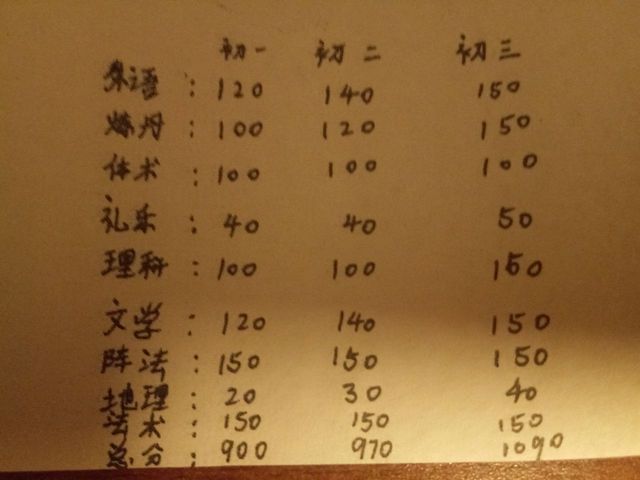 初一 初二 初三
外语：120 140 150
炼丹：100 120 150
体术：100 100 100
礼乐：40 40 50
理科：100 100 150
文学：120 140 150
阵法：150 150 150
地理：20 30 40
法术：150 150 150
总分：900 970 1090